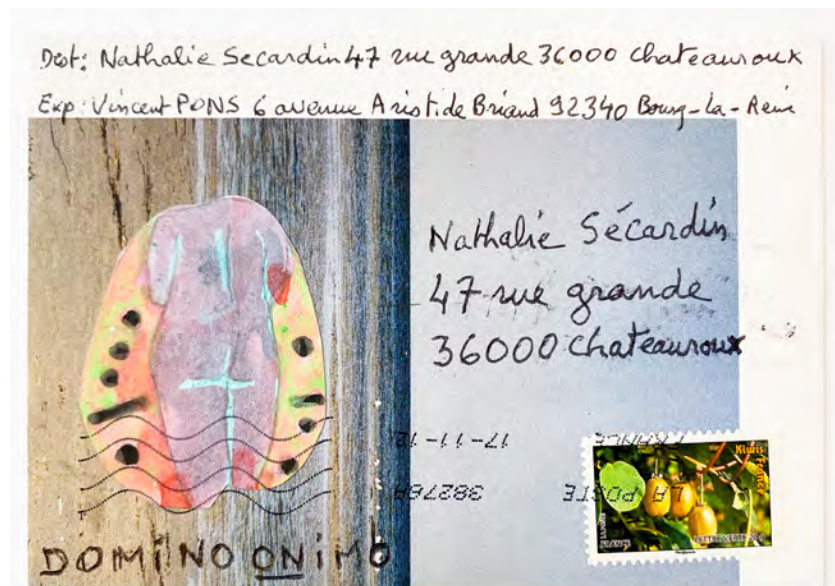 Dest: Nathalie Secardin 47 rue grande 36000 chateauroux
Exp: Vincent PONS 6 avenue Aristide Briand 92340 Bourg-La-Reine
Nathalie Sécardin
47 rue grande
36000 chateauroux
LA POSTE
FRANCE
Kiwis
France
LETTRE VERTE 20g
FRANCE
DOMINO ONIMO